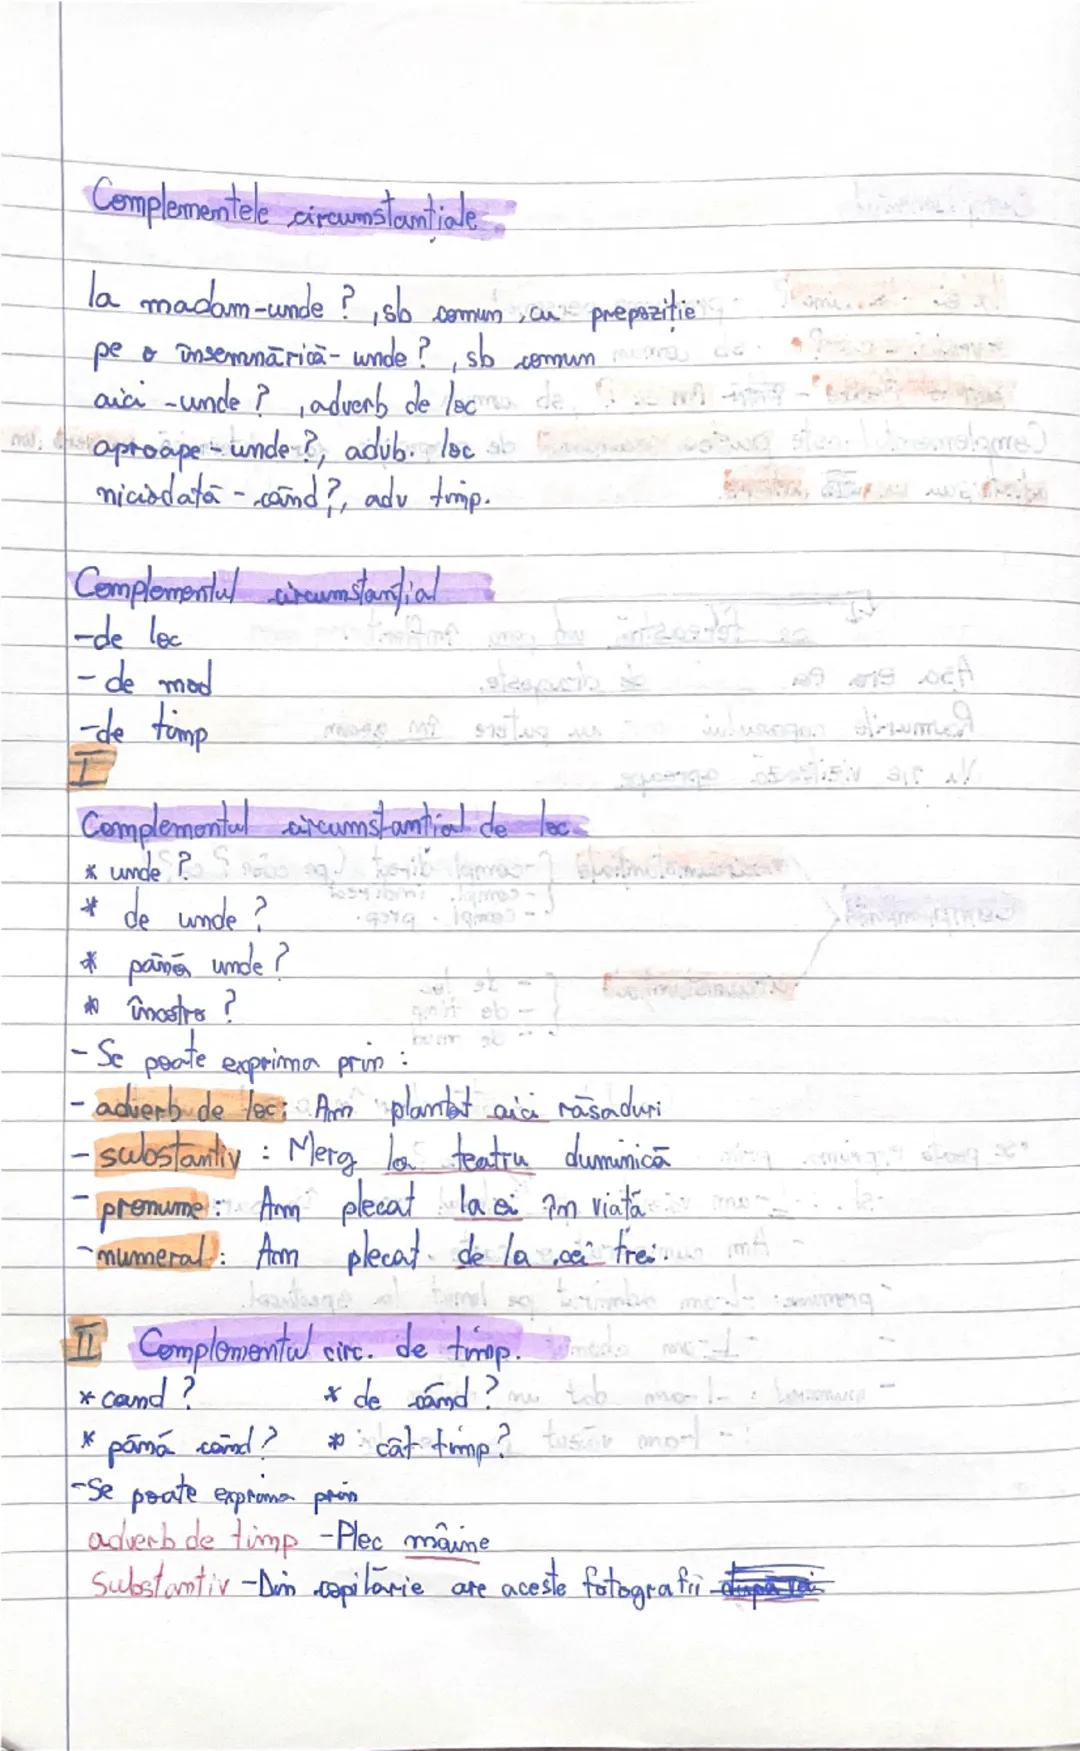 Complementele circumstanțiale
la madam-unde ?, sb comun, cu prepoziție
pe o însemnărică- unde ?, sb comun
aici -unde ?, adverb de loc
aproape - unde ?, adub. loc
niciodată - când ?, adv timp.
Complementul circumstanțial
-de loc
- de mod
-de timp
I
Complementul circumstanțial de loc
* unde ?
* de unde ?
* până unde ?
* încotro ?
- Se poate exprima prin :
- adverb de loc: Am plantat aici răsaduri
- substantiv : Merg la teatru duminică
- pronume : Am plecat la ei în viață
- numeral : Am plecat de la cei trei.
II Complementul circ. de timp.
* cand ? * de când ?
* până când ? * cât timp ?
-Se poate exprima prin
adverb de timp -Plec mâine
Substantiv -Din copilărie are aceste fotografii